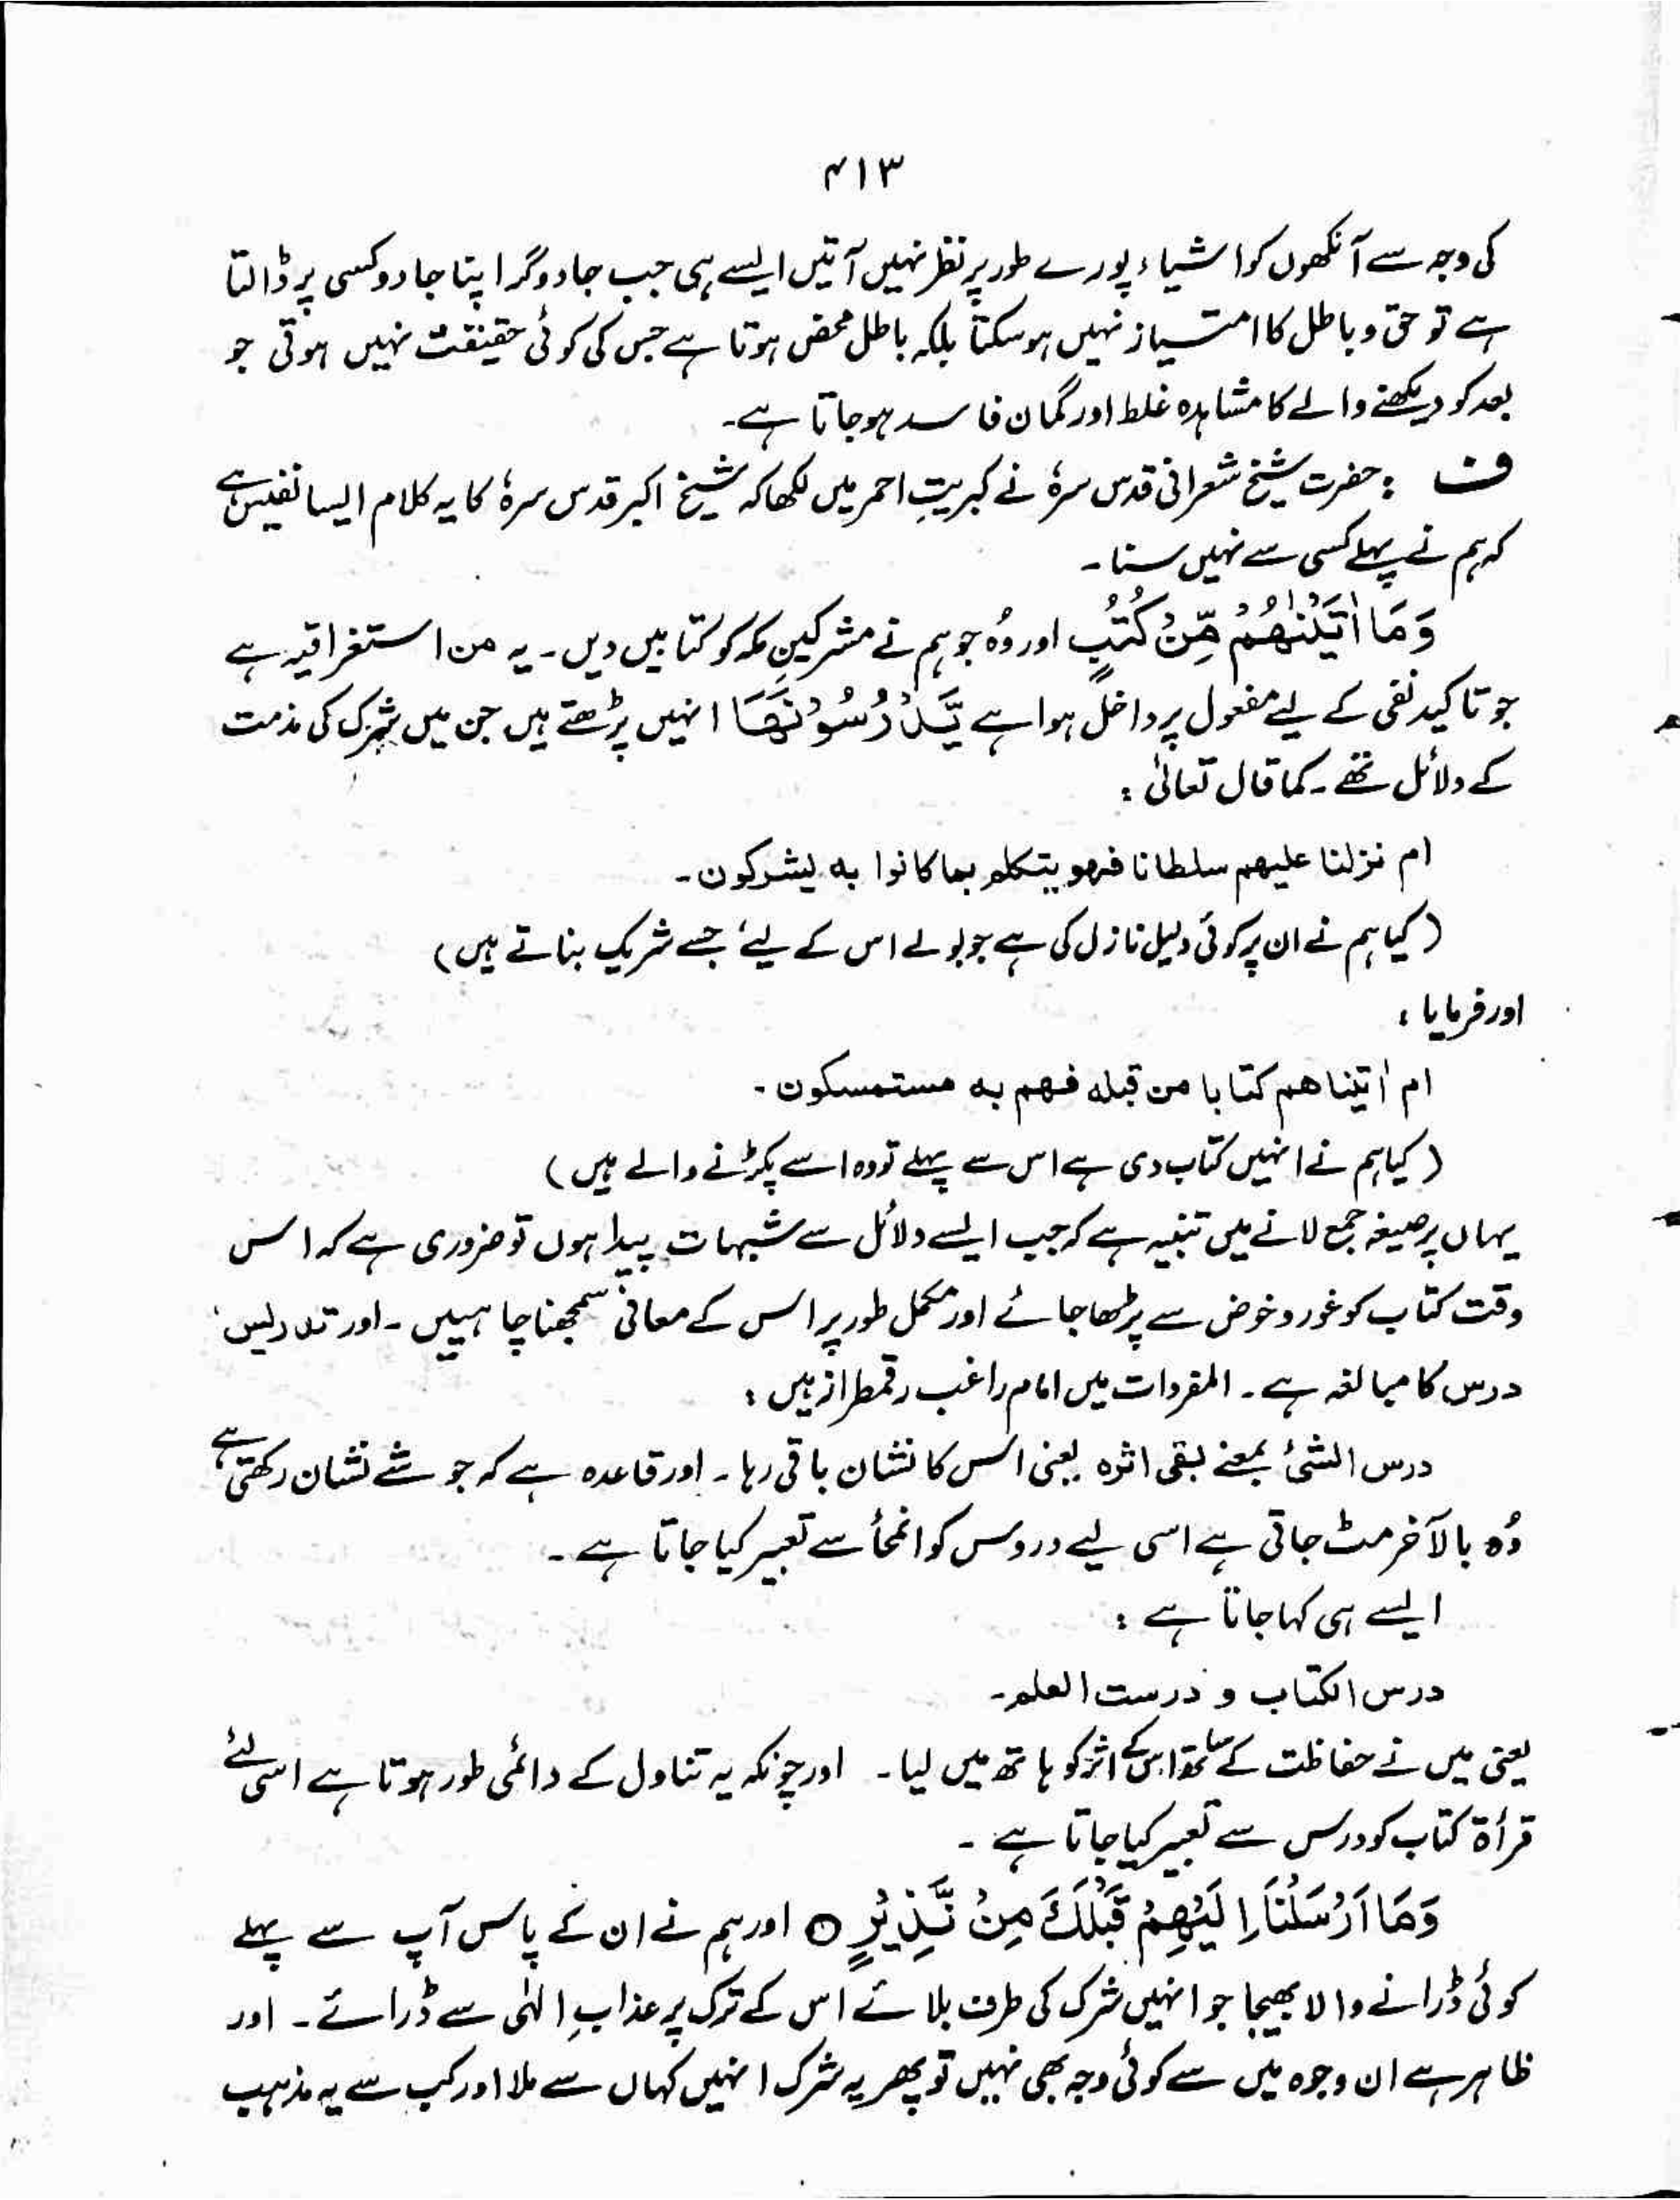 ۴۱۳
کی وجہ سے آنکھوں کو اشیاء پورے طور پر نظر نہیں آتیں ایسے ہی جب جادوگر اپنا جادو کسی پر ڈالتا
ہے تو حق و باطل کا امتیاز نہیں ہو سکتا بلکہ باطل محض ہوتا ہے جس کی کوئی حقیقت نہیں ہوتی جو
بعد کو دیکھنے والے کا مشاہدہ غلط اور گمان فاسد ہو جاتا ہے۔
ف : حضرت شیخ شعرانی قدس سرہٗ نے کبریتِ احمر میں لکھا کہ شیخ اکبر قدس سرہٗ کا یہ کلام ایسا نفیس ہے
کہ ہم نے پہلے کسی سے نہیں سنا۔
وَمَا اٰتَیْنٰھُمْ مِّنْ كُتُبٍ اور وُہ جو ہم نے مشرکینِ مکہ کو کتابیں دیں۔ یہ من استغراقیہ ہے
جو تاکید نفی کے لیے مفعول پر داخل ہوا ہے یَّدْرُسُوْنَھَا انہیں پڑھتے ہیں جن میں شرک کی مذمت
کے دلائل تھے۔ کما قال تعالیٰ :
ام نزلنا علیھم سلطانا فھو یتکلم بما کانوا به یشرکون۔
(کیا ہم نے ان پر کوئی دلیل نازل کی ہے جو بولے اس کے لیے جسے شریک بناتے ہیں)
اور فرمایا :
ام اٰتیناھم کتابا من قبله فھم به مستمسکون۔
(کیا ہم نے انہیں کتاب دی ہے اس سے پہلے تو وہ اسے پکڑنے والے ہیں)
یہاں پر صیغہ جمع لانے میں تنبیہ ہے کہ جب ایسے دلائل سے شبہات پیدا ہوں تو ضروری ہے کہ اس
وقت کتاب کو غور و خوض سے پڑھا جائے اور مکمل طور پر اس کے معانی سمجھنا چاہییں۔ اور تدریس
درس کا مبالغہ ہے۔ المفردات میں امام راغب رقمطراز ہیں :
درس الشیٔ بمعنے بقی اثرہ یعنی اس کا نشان باقی رہا۔ اور قاعدہ ہے کہ جو شے نشان رکھتی ہے
وُہ بالآخر مٹ جاتی ہے اسی لیے دروس کو انمحأ سے تعبیر کیا جاتا ہے۔
ایسے ہی کہا جاتا ہے :
درس الکتاب و درست العلم۔
یعنی میں نے حفاظت کے ساتھ اس کے اثر کو ہاتھ میں لیا۔ اور چونکہ یہ تناول کے دائمی طور ہوتا ہے اسی لئے
قرأۃ کتاب کو درس سے تعبیر کیا جاتا ہے۔
وَمَا اَرْسَلْنَا اِلَیْھِمْ قَبْلَكَ مِنْ نَّذِیْرٍ ○ اور ہم نے ان کے پاس آپ سے پہلے
کوئی ڈرانے والا بھیجا جو انہیں شرک کی طرف بلائے اس کے ترک پر عذابِ الٰہی سے ڈرائے۔ اور
ظاہر ہے ان وجوہ میں سے کوئی وجہ بھی نہیں تو پھر یہ شرک انہیں کہاں سے ملا اور کب سے یہ مذہب